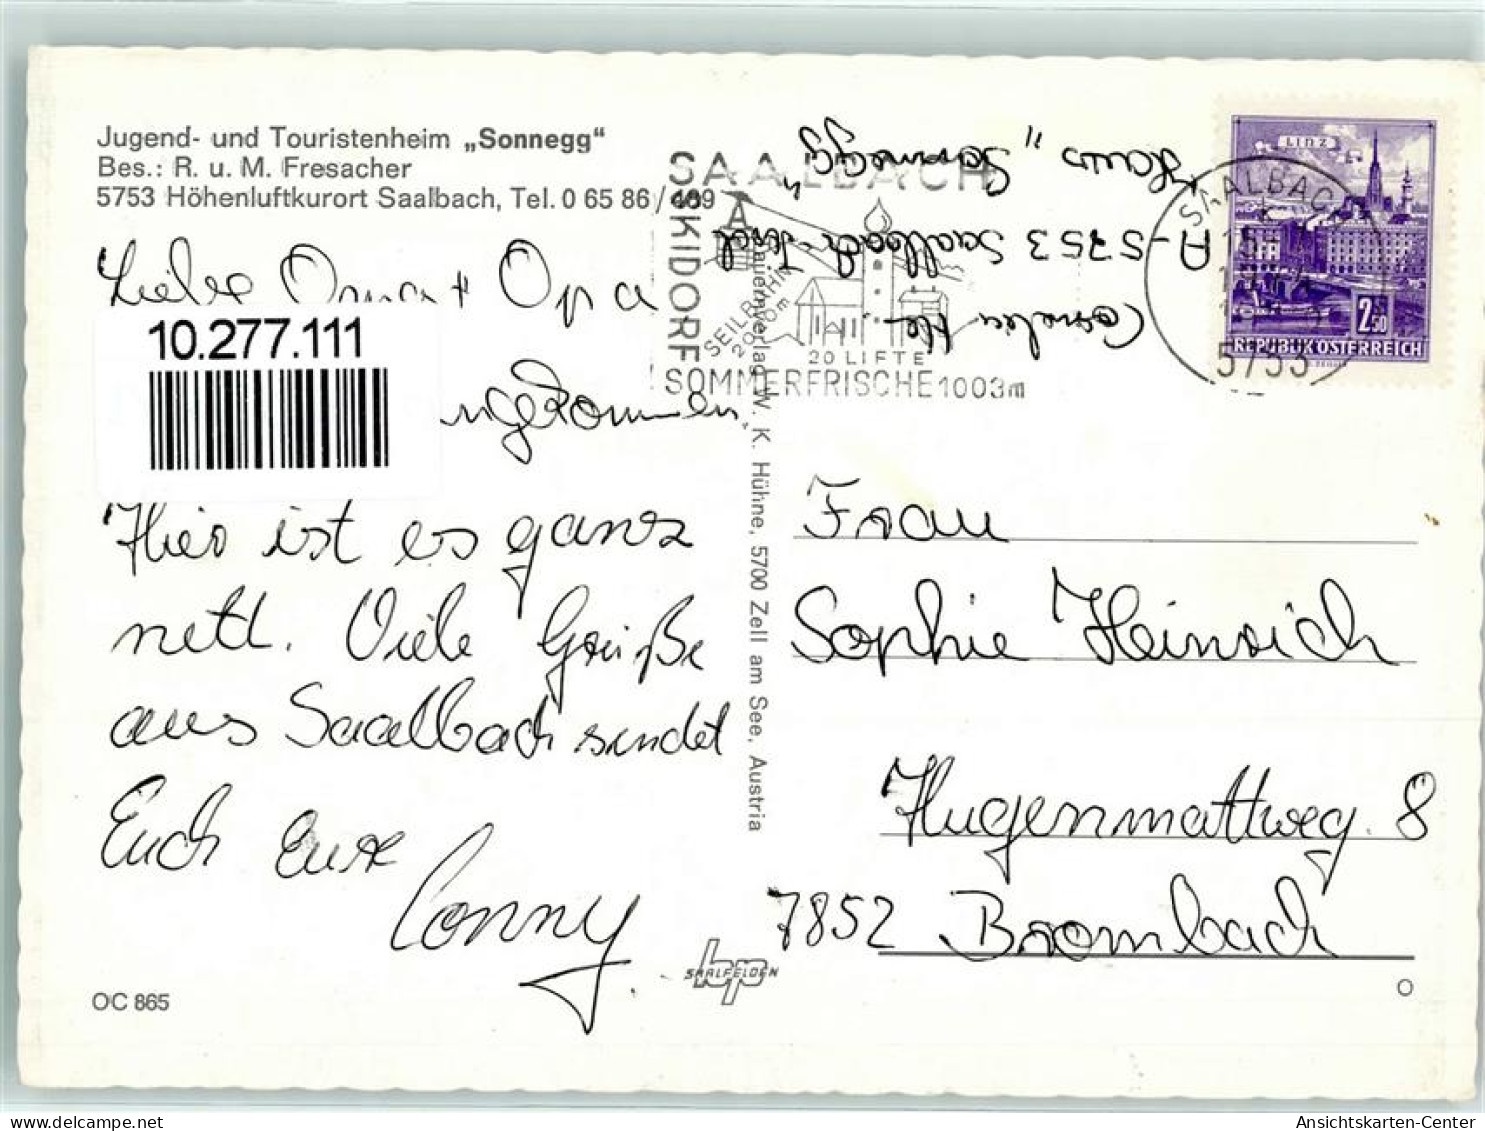 Jugend- und Touristenheim „Sonnegg"
Bes.: R. u. M. Fresacher
5753 Höhenluftkurort Saalbach, Tel. 0 65 86/489
Liebe Oma + Opa
10.277.111
ngekommen.
Hier ist es ganz
nett. Viele Grüße
aus Saalbach sendet
Euch eure
Conny
OC 865
SAALBACH
SKIDORF
SEILBAHN
2000m
20 LIFTE
SOMMERFRISCHE 1003m
Haus „Sonnegg"
A-5753 Saalbach
Bauernverlag W. K. Hühne, 5700 Zell am See, Austria
LINZ
2,50
REPUBLIK ÖSTERREICH
SAALBACH
5753
Frau
Sophie Heinrich
Hugenmattweg 8
7852 Brombach
SAALFELDEN
Ansichtskarten-Center